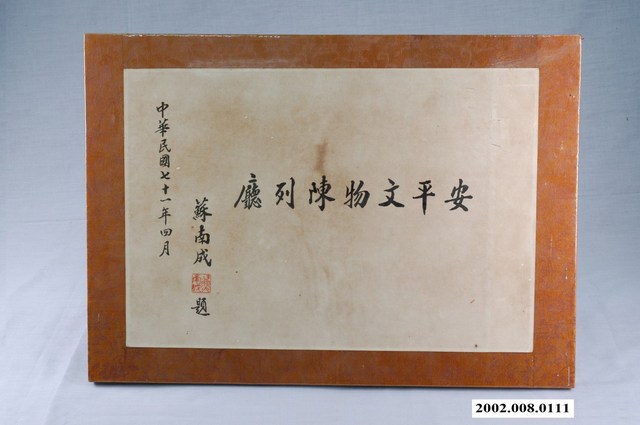 安平文物陳列廳
中華民國七十一年四月
蘇南成
題
2002.008.0111